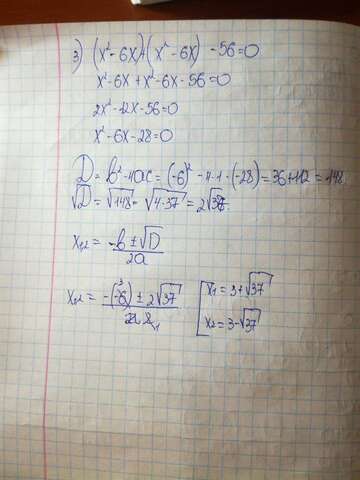 3) (x²-6x)+(x²-6x)-56=0
x²-6x+x²-6x-56=0
2x²-12x-56=0
x²-6x-28=0
D=b²-4ac=(-6)²-4·1·(-28)=36+112=148
√D=√148=√4·37=2√37.
x₁,₂=(-b±√D)/2a
x₁,₂=(-(-6)±2√37)/2
x₁=3+√37
x₂=3-√37